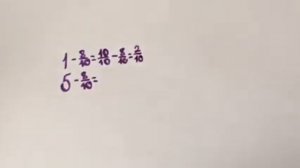 1 - 8/10 = 10/10 - 8/10 = 2/10
5 - 8/10 =